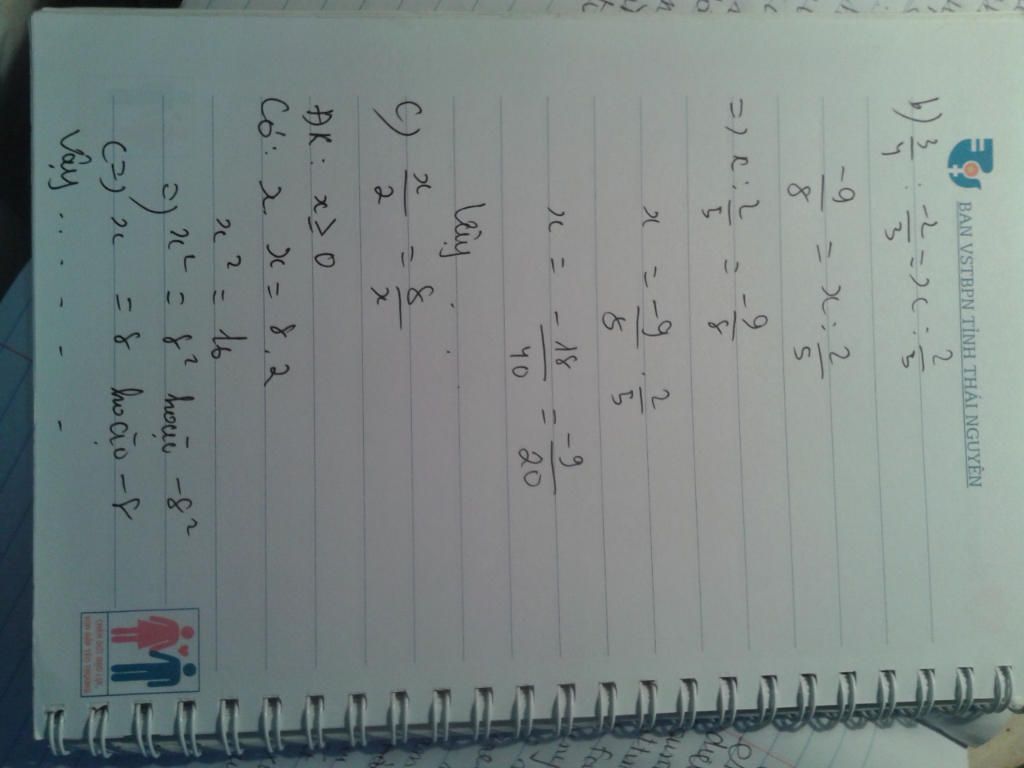 BAN VSTBPN TỈNH THÁI NGUYÊN
b) 3/4 . -2/3 = x : 2/5
-9/8 = x : 2/5
=> x : 2/5 = -9/8
x = -9/8 . 2/5
x = -18/40 = -9/20
Vậy . . .
C) x/2 = 8/x
ĐK : x ≥ 0
Có : x x = 8 . 2
x² = 16
=> x² = 8² hoặc -8²
(=) x = 8 hoặc -8
Vậy . . . - - -